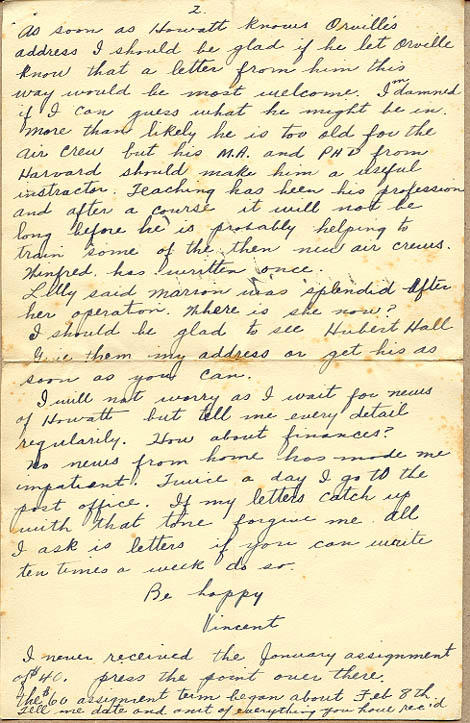 2.
As soon as Howatt knows Orville's
address I should be glad if he let Orville
know that a letter from him this
way would be most welcome. I'm damned
if I can guess what he might be in.
More than likely he is too old for the
air crew but his M.A. and PHD from
Harvard should make him a useful
instructor. Teaching has been his profession
and after a course it will not be
long before he is probably helping to
train some of the then new air crews.
Winfred has written once.
Lilly said Marion was splendid after
her operation. Where is she now?
I should be glad to see Hubert Hall
Give them my address or get his as
soon as you can.
I will not worry as I wait for news
of Howatt but tell me every detail
regularily. How about finances?
No news from home has made me
impatient. Twice a day I go to the
post office. If my letters catch up
with that tone forgive me. All
I ask is letters if you can write
ten times a week do so.
Be happy
Vincent
I never received the January assignment
of $40. press the point over there.
The $60 assignment term began about Feb 8th
Tell me date and amt of everything you have rec'd